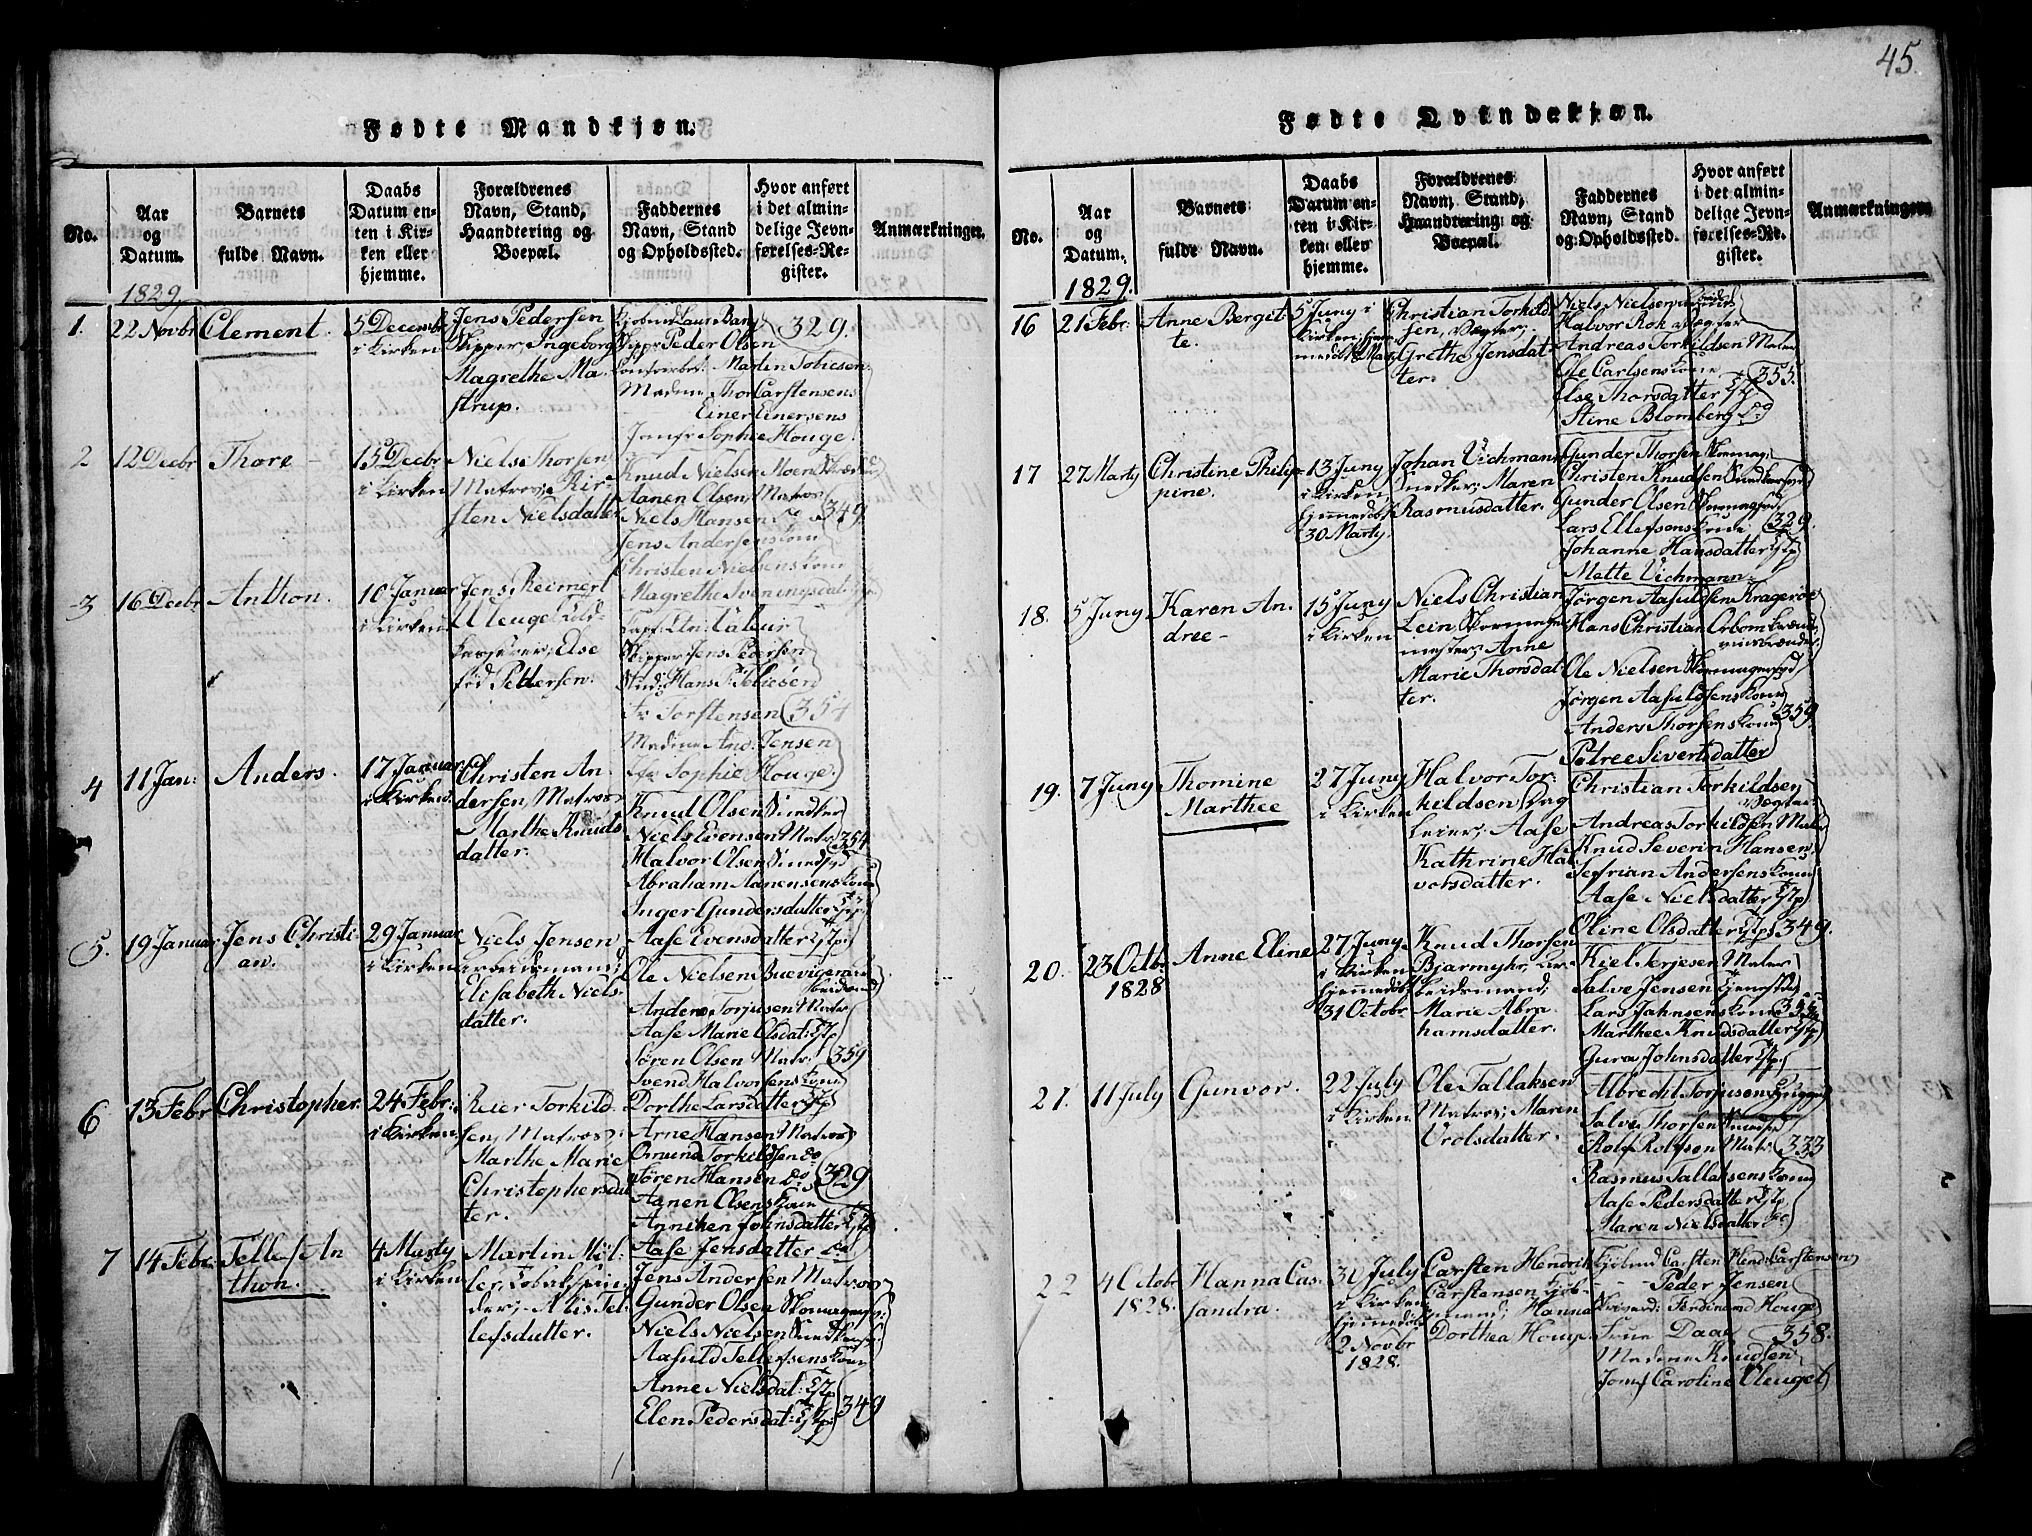 45.
Fødte Mandkjøn.
No.
Aar
og
Datum.
Barnets
fulde Navn.
Daabs
Datum en-
ten i Kir-
ken eller
hjemme.
Forældrenes
Navn, Stand,
Haandtering og
Boepæl.
Faddernes
Navn, Stand
og Opholdssted.
Hvor anført
i det almin-
delige Jevn-
førelses-Re-
gister.
Anmærkninger.
1829
1.
22 Novbr
Clement.
5 Decembr
i Kirken
Jens Pedersen
Skipper, Ingeborg
Magrethe Ma-
strup.
Peder Olsen
Martin Tobiesen
Madme Thor Carstensens
Einer Einersens
Jomfr Sophie Houge.
329.
2
12 Decbr
Thore
15 Decbr
i Kirken
Niels Thorsen,
Matros; Kir-
sten Nielsdatter
Knud Nielsen Moen
Aanen Olsen, Matros
Niels Hansen do
Jens Andersens kone
Christen Nielsens kone
Magrethe Sveningsdat:
349.
3
16 Decbr
Anthon.
10 Januar
i Kirken
Jens Reimert
Else
fød Pettersen.
Skipper Jens Pedersen
Hans P. Tobiesen
Fr Torstensen
Madme And: Jensen
Jfr Sophie Houge.
354
4
11 Jan:
Anders.
17 Januar
i Kirken.
Christen An-
dersen, Matros
Marthe Knuds-
datter.
Knud Olsen Smedker
Niels Evensen Matr:
Halvor Olsen Smedsvd
Abraham Aanensens kone
Inger Gundersdatter
Aase Evensdatter
354
5.
19 Januar
Jens Christi-
an.
29 Januar
i Kirken
Niels Jensen
Arbeidsmand;
Elisabeth Niels-
datter.
Ole Nielsen Buevigen
Anders Torjusen Matr
Aase Marie Olsdat:
Søren Olsen Matr:
Svend Halvorsens kone
Dorthe Larsdatter
359
6
13 Febr
Christopher.
24 Febr:
i Kirken,
Reier Torkild-
sen, Matros;
Marthe Marie
Christophersdat
ter.
Arne Hansen Matros
Omund Torkildsen do
Søren Hansen do
Aanen Olsens kone
Anniken Johnsdatter
Aase Jensdatter do
329
7
14 Febr:
Tellef An
thon.
4 Marty
i Kirken
Martin Møl-
ler, Tobakspin-
der; Alis Tel-
lefsdatter.
Jens Andersen Matros
Gunder Olsen
Niels Nielsen
Aasuld Tellefsens kone
Anne Nielsdat:
Elen Pedersdat:
349
Fødte Qvindekjøn.
No.
Aar
og
Datum.
Barnets
fulde Navn.
Daabs
Datum en-
ten i Kir-
ken eller
hjemme.
Forældrenes
Navn, Stand,
Haandtering og
Boepæl.
Faddernes
Navn, Stand
og Opholdssted.
Hvor anført
i det almin-
delige Jevn-
førelses-Re-
gister.
Anmærkninger.
1829.
16
21 Febr:
Anne Bergit-
te.
5 Juny i
Kirken,
Christian Torkild-
sen, Vægter;
Grethe Jensdat-
ter.
Niels Nielsen
Halvor Rok Vægter
Andreas Torkildsen Matr
Ole Carlsens kone
Else Thorsdatter
Stine Blomberg do
355.
17
27 Marty
Christine Philip-
pine.
13 Juny
i Kirken,
hjemmedøbt
30 Marty.
Johan Vichman
Maren
Rasmusdatter.
Gunder Thorsen
Christen Knudsen
Gunder Olsen
Lars Ellefsens kone
Johanne Hansdatter
Mette Vichmann
329.
18.
5 Juny
Karen An-
dree
15 Juny
i Kirken
Niels Christian
Lein
mester; Anne
Marie Thorsdat
ter.
Jørgen Aasuldsen Kragerøe
Hans Christian Orbom
Ole Nielsen
Jørgen Aasuldsens kone
Anders Thorsens kone
Petree Sivertsdatter
359.
19.
7 Juny
Thomine
Marthee
27 Juny
i Kirken
Halvor Tor-
kildsen Dag
leier; Aase
Kathrine Hal
vorsdatter.
Christian Torkildsen
Vægter
Andreas Torkildsen Matr
Knud Severin Hansen
Sefrian Andersens kone
Aase Nielsdatter
Oline Olsdatter
349.
20.
23 Octbr
1828
Anne Eline
27 Juny
i Kirken
hjemmedøbt
31 Octobr
Knud Thorsen
Bjarmyhr, Ar-
beidsmand;
Marie Abra
hamsdatter.
Kiel Terjesen Matr
Salve Jensen
Lars Jahnsens kone
Marthee Knudsdatter
Guroe Johnsdatter
355
21.
11 July
Gunvor.
22 July
i Kirken
Ole Tallaksen
Matros; Maren
Vrolsdatter.
Albrecht Torjusen
Salve Thorsen
Rolf Rolfsen Matr
Rasmus Tallaksens kone
Aase Pedersdatter
Maren Nielsdatter do
333
22
4 Octobr
1828.
Hanna Cas-
sandra.
30 July
i Kirken
hjemmedøbt
2 Novbr
1828.
Carsten Hendrik
Carstensen Kjøb-
mand; Hanna
Dorthea Houge.
Kjøbmd Carsten Hend: Carstensen
Peder Jensen
Ferdinand Houge
Frue Daae
Madme Knudsen
Jomf Caroline Oleugel
358.